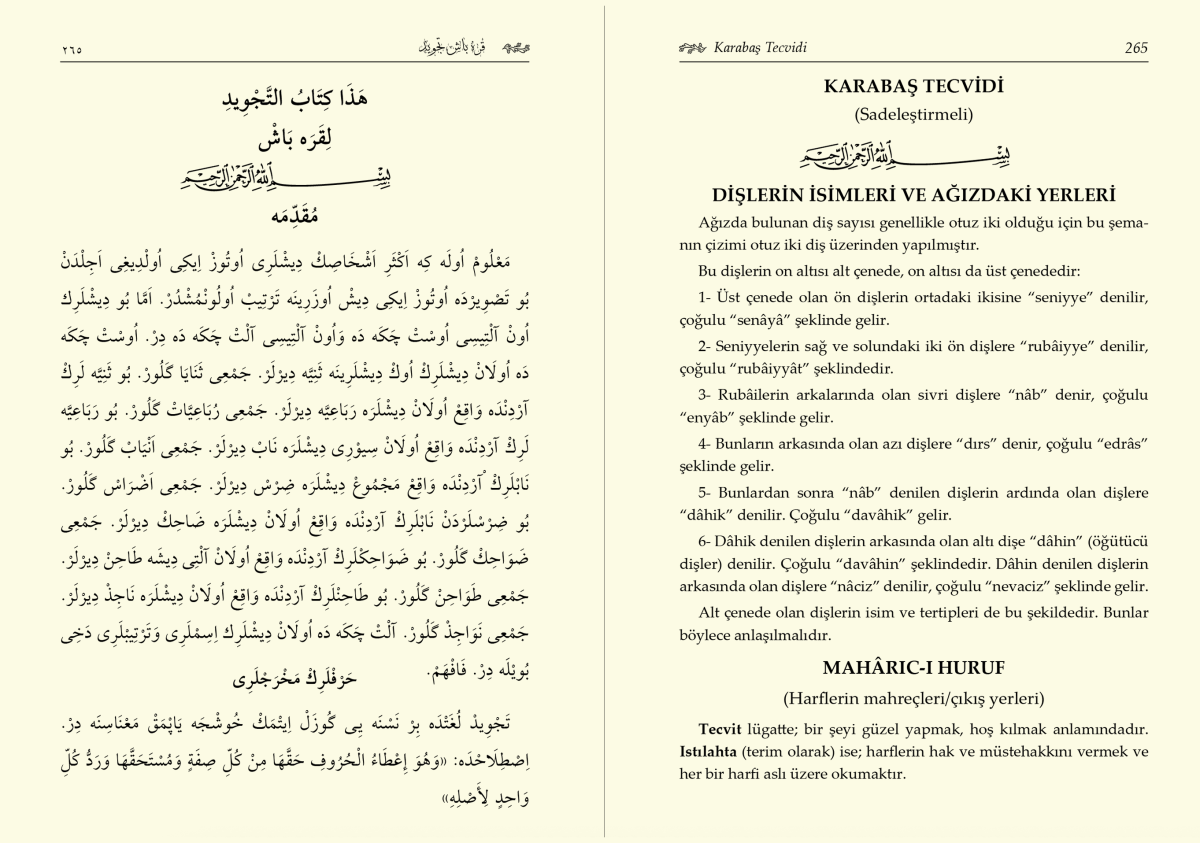 ٢٦٥
قره باش تجويد
هَذَا كِتَابُ التَّجْوِيدِ
لِقَرَه بَاشْ
بِسْمِ اللّٰهِ الرَّحْمٰنِ الرَّحِيمِ
مُقَدِّمَه
مَعْلُومْ اُولَه كِه اَكْثَرِ اَشْخَاصِكْ دِيشْلَرِى اُوتُوزْ اِيكِى اُولْدِيغِى اَجِلْدَنْ
بُو تَصْوِيرْدَه اُوتُوزْ اِيكِى دِيشْ اُوزَرِينَه تَرْتِيبْ اُولُونْمُشْدُرْ. اَمَّا بُو دِيشْلَرِك
اُونْ اَلْتِيسِى اُوسْتْ چَكَه دَه وَاُونْ اَلْتِيسِى اَلْتْ چَكَه دَه دِرْ. اُوسْتْ چَكَه
دَه اُولَانْ دِيشْلَرِكْ اُوكْ دِيشْلَرِينَه ثَنِيَّه دِيرْلَرْ. جَمْعِى ثَنَايَا گَلُورْ. بُو ثَنِيَّه لَرِكْ
اَرْدِنْدَه وَاقِعْ اُولَانْ دِيشْلَرَه رَبَاعِيَّه دِيرْلَرْ. جَمْعِى رُبَاعِيَّاتْ گَلُورْ. بُو رَبَاعِيَّه
لَرِكْ اَرْدِنْدَه وَاقِعْ اُولَانْ سِيوْرِى دِيشْلَرَه نَابْ دِيرْلَرْ. جَمْعِى اَنْيَابْ گَلُورْ. بُو
نَابْلَرِكْ اَرْدِنْدَه وَاقِعْ مَجْمُوعْ دِيشْلَرَه ضِرْسْ دِيرْلَرْ. جَمْعِى اَضْرَاسْ گَلُورْ.
بُو ضِرْسْلَرْدَنْ نَابْلَرِكْ اَرْدِنْدَه وَاقِعْ اُولَانْ دِيشْلَرَه ضَاحِكْ دِيرْلَرْ. جَمْعِى
ضَوَاحِكْ گَلُورْ. بُو ضَوَاحِكْلَرِكْ اَرْدِنْدَه وَاقِعْ اُولَانْ اَلْتِى دِيشَه طَاحِنْ دِيرْلَرْ.
جَمْعِى طَوَاحِنْ گَلُورْ. بُو طَاحِنْلَرِكْ اَرْدِنْدَه وَاقِعْ اُولَانْ دِيشْلَرَه نَاجِذْ دِيرْلَرْ.
جَمْعِى نَوَاجِذْ گَلُورْ. اَلْتْ چَكَه دَه اُولَانْ دِيشْلَرِك اِسِمْلَرِى وَتَرْتِيبْلَرِى دَخِى
بُويْلَه دِرْ. فَافْهَمْ.
حَرْفْلَرِكْ مَخْرَجْلَرِى
تَجْوِيدْ لُغَتْدَه بِرْ نَسْنَه يِى گُوزَلْ اِيتْمَكْ خُوشْجَه يَاپْمَقْ مَعْنَاسِنَه دِرْ.
اِصْطِلَاحْدَه: «وَهُوَ إِعْطَاءُ الْحُرُوفِ حَقَّهَا مِنْ كُلِّ صِفَةٍ وَمُسْتَحَقَّهَا وَرَدُّ كُلِّ
وَاحِدٍ لِأَصْلِهِ»
Karabaş Tecvidi
265
KARABAŞ TECVİDİ
(Sadeleştirmeli)
بِسْمِ اللّٰهِ الرَّحْمٰنِ الرَّحِيمِ
DİŞLERİN İSİMLERİ VE AĞIZDAKİ YERLERİ
Ağızda bulunan diş sayısı genellikle otuz iki olduğu için bu şema-
nın çizimi otuz iki diş üzerinden yapılmıştır.
Bu dişlerin on altısı alt çenede, on altısı da üst çenededir:
1- Üst çenede olan ön dişlerin ortadaki ikisine “seniyye” denilir,
çoğulu “senâyâ” şeklinde gelir.
2- Seniyyelerin sağ ve solundaki iki ön dişlere “rubâiyye” denilir,
çoğulu “rubâiyyât” şeklindedir.
3- Rubâilerin arkalarında olan sivri dişlere “nâb” denir, çoğulu
“enyâb” şeklinde gelir.
4- Bunların arkasında olan azı dişlere “dırs” denir, çoğulu “edrâs”
şeklinde gelir.
5- Bunlardan sonra “nâb” denilen dişlerin ardında olan dişlere
“dâhik” denilir. Çoğulu “davâhik” gelir.
6- Dâhik denilen dişlerin arkasında olan altı dişe “dâhin” (öğütücü
dişler) denilir. Çoğulu “davâhin” şeklindedir. Dâhin denilen dişlerin
arkasında olan dişlere “nâciz” denilir, çoğulu “nevaciz” şeklinde gelir.
Alt çenede olan dişlerin isim ve tertipleri de bu şekildedir. Bunlar
böylece anlaşılmalıdır.
MAHÂRIC-I HURUF
(Harflerin mahreçleri/çıkış yerleri)
Tecvit lügatte; bir şeyi güzel yapmak, hoş kılmak anlamındadır.
Istılahta (terim olarak) ise; harflerin hak ve müstehakkını vermek ve
her bir harfi aslı üzere okumaktır.